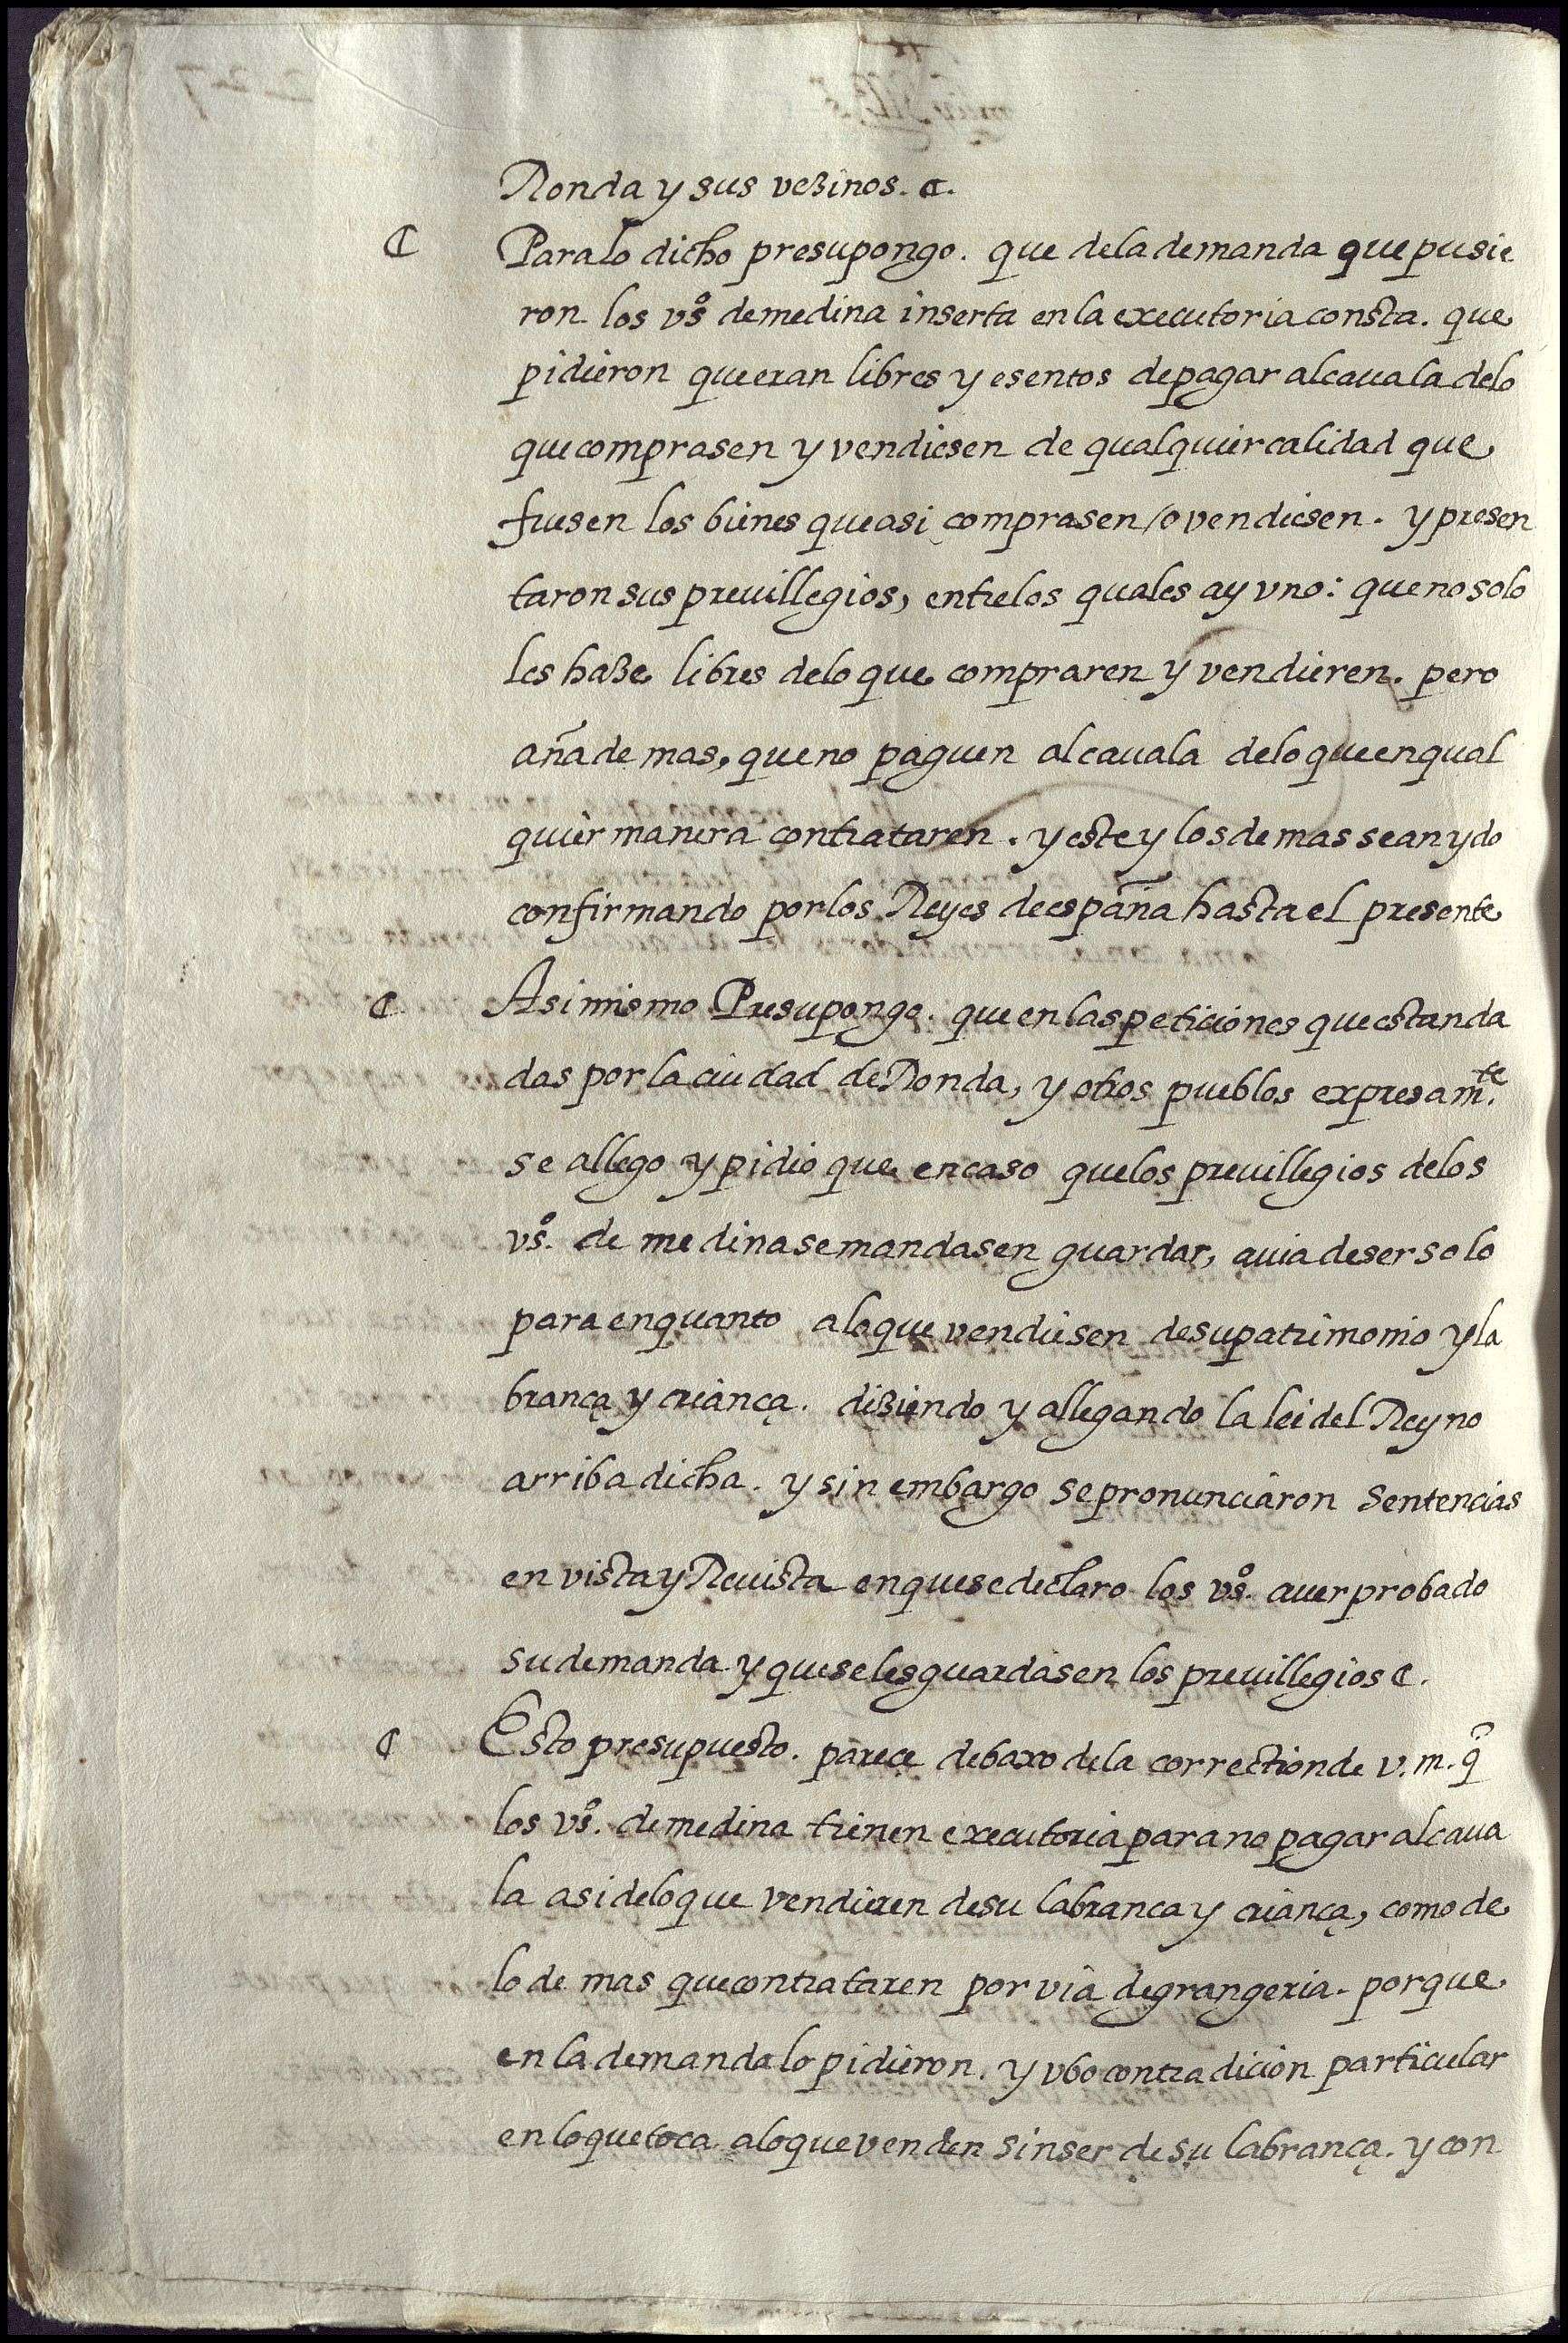 Ronda y sus vezinos. ₡.
₡ Para lo dicho presupongo. que dela demanda que pusie
ron los vsº de medina inserta en la executoria consta. que
pidieron que eran libres y esentos de pagar alcauala delo
que comprasen y vendiesen de qualquier calidad que
fuesen los bienes que asi comprasen / o vendiesen. y presen
taron sus preuillegios, entre los quales ay vno: que no solo
les haze libres delo que compraren y vendieren. pero
añade mas, que no paguen alcauala delo que en qual
quier manera contrataren. y este y los demas se an ydo
confirmando por los Reyes de españa hasta el presente
₡ Asi mismo Presupongo. que en las peticiones que estan da
das por la ciudad de Ronda, y otros pueblos expresamte.
se allego y pidio que en caso que los preuillegios delos
vsº. de medina se mandasen guardar, auia de ser solo
para en quanto alo que vendiesen de su patrimonio y la
brança y criança. diziendo y allegando la lei del Reyno
arriba dicha. y sin embargo se pronunciaron sentencias
en vista y Reuista en que se declaro los vsº. auer probado
su demanda y que se les guardasen los preuillegios ₡.
₡ Esto presupuesto. parece debaxo dela correction de v. m. q̃
los vsº. de medina tienen executoria para no pagar alcaua
la asi delo que vendieren de su labranca y criança, como de
lo de mas que contrataren por via de grangeria. porque
en la demanda lo pidieron. y vbo contradicion particular
en lo que toca alo que venden sin ser de su labrança. y con